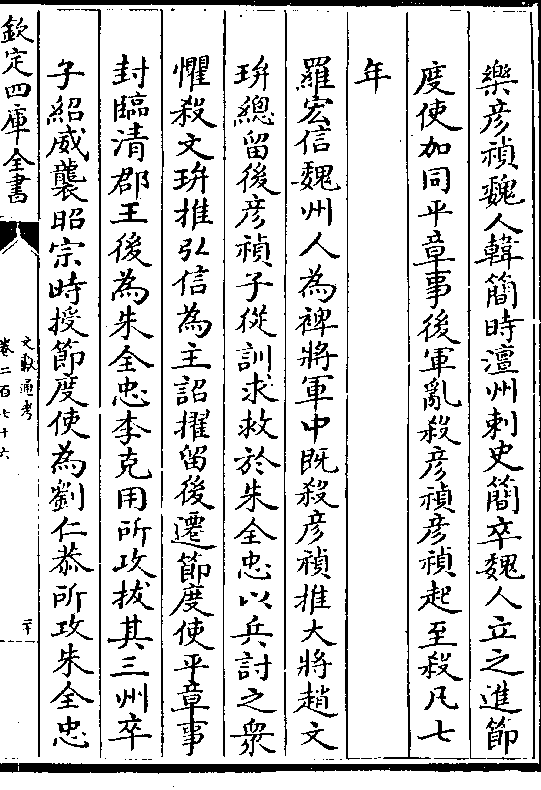 樂彦禎魏人韓簡時澶州刺史簡卒魏人立之進節
度使加同平章事後軍亂殺彦禎彦禎起至殺凡七
年
羅宏信魏州人為裨將軍中既殺彦禎推大將趙文
㺹總留後彦禎子從訓求救於朱全忠以兵討之衆
懼殺文㺹推弘信為主詔擢留後遷節度使平章事
封臨清郡王後為朱全忠李克用所攻拔其三州卒
子紹威襲昭宗時授節度使為劉仁恭所攻朱全忠
欽定四庫全書
文獻通考
卷二百七十六
二十